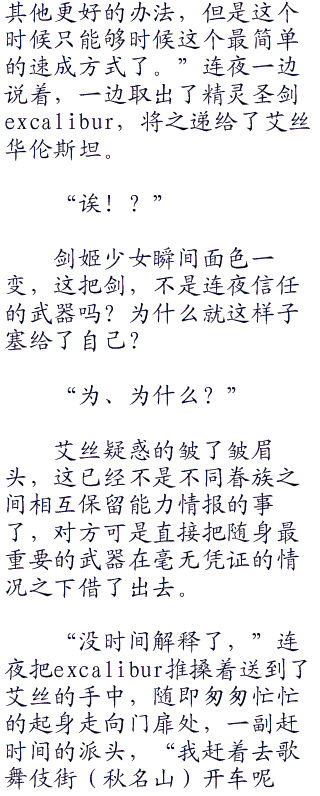 其他更好的办法，但是这个
时候只能够时候这个最简单
的速成方式了。”连夜一边
说着，一边取出了精灵圣剑
excalibur，将之递给了艾丝
华伦斯坦。
“诶！？”
剑姬少女瞬间面色一
变，这把剑，不是连夜信任
的武器吗？为什么就这样子
塞给了自己？
“为、为什么？”
艾丝疑惑的皱了皱眉
头，这已经不是不同眷族之
间相互保留能力情报的事
了，对方可是直接把随身最
重要的武器在毫无凭证的情
况之下借了出去。
“没时间解释了，”连
夜把excalibur推搡着送到了
艾丝的手中，随即匆匆忙忙
的起身走向门扉处，一副赶
时间的派头，“我赶着去歌
舞伎街（秋名山）开车呢